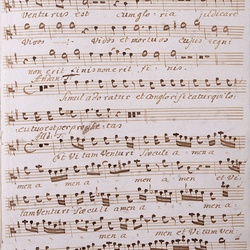 venturus est cum gloria judicare
vivos vivos et mortuos cujus regni
non erit finis non erit finis
Simul adoratur et conglorificatur qui lo
cutus est per prophetas
et vitam venturi saeculi a
men a men a men et vi
tam venturi saeculi amen a
men a men et vitam ven